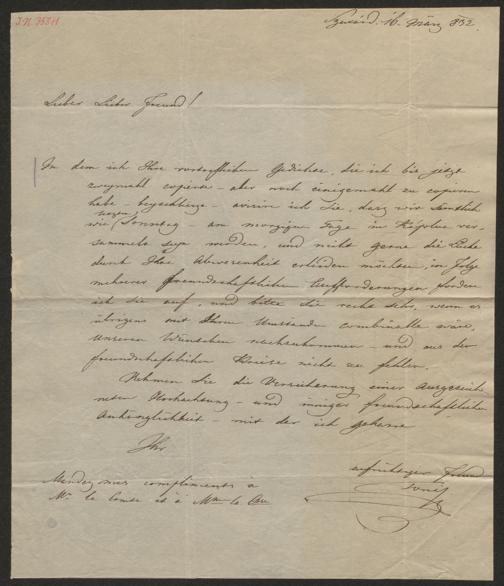 I.N. 35811
16. März 832.
Lieber Lieber Freund!
In dem ich Ihre vortrefflichen Gedichte, die ich bis jetzt
zweymahl copierte – aber noch einigemahl zu copieren
habe – beyschliesse – avisire ich Sie, dass wir sämtlich
wegen
wie Sonntag – am morgigen Tage in ver-
sammelt seyn werden, und nicht gerne die Lücke
durch Ihre Abwesenheit erleiden möchten, in folge
mehrerer freundschaftlichen Aufforderungen, fordere
ich Sie auf, und bitte Sie recht sehr, wenn es
übrigens mit Ihren Umständen combinable wäre,
unseren Wünschen nachzukommen – und aus der
freundschaftlichen Kreise nicht zu fehlen.
Nehmen Sie die Versicherung einer ausgezeich
neten Hochachtung – und inniger freundschaftlichen
Anhänglichkeit – mit der ich geharre
Ihr
aufrichtiger Freund
Mandez mes compliments a
Mr le Comte et à Mme la